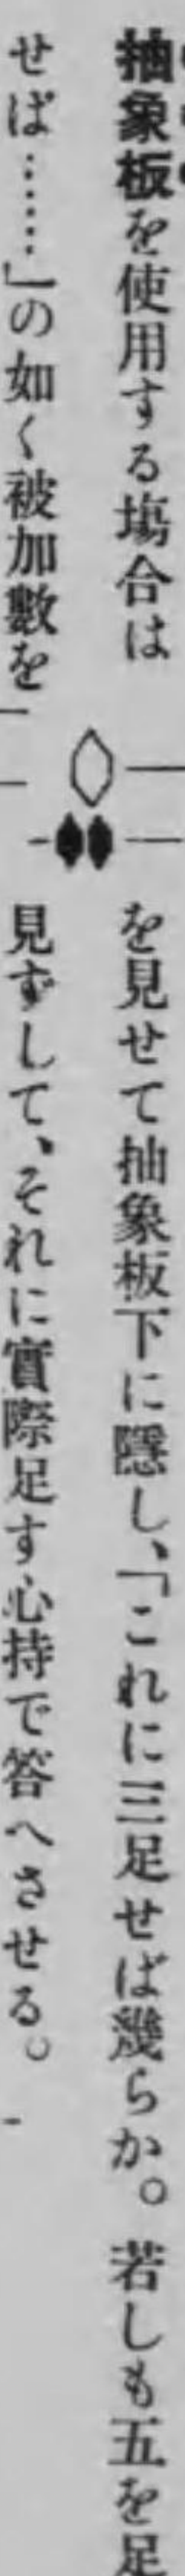 抽象板を使用する塲合は◇◆◆を見せて抽象板下に隱し、「これに三足せば幾らか。若しも五を足
せば……」の如く被加數を見ずして、それに實際足す心持で答へさせる。